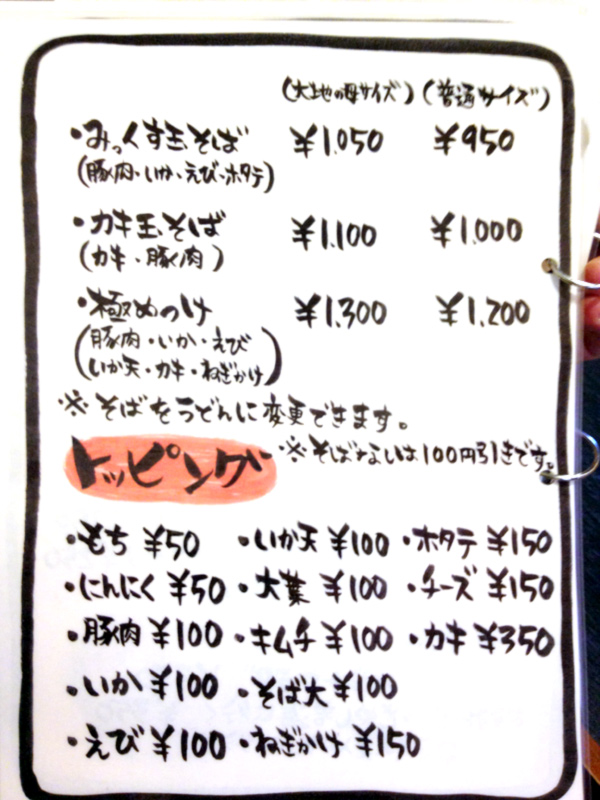 (大地の母サイズ) (普通サイズ)
・みっくす玉そば ¥1.050 ¥950
(豚肉・いか・えび・ホタテ)
・カキ玉そば ¥1.100 ¥1.000
(カキ・豚肉)
・極めつけ ¥1.300 ¥1.200
(豚肉・いか・えび
いか天・カキ・ねぎかけ)
※そばをうどんに変更できます。
トッピング ※そばないは100円引きです。
・もち ¥50 ・いか天 ¥100 ・ホタテ ¥150
・にんにく ¥50 ・大葉 ¥100 ・チーズ ¥150
・豚肉 ¥100 ・キムチ ¥100 ・カキ ¥350
・いか ¥100 ・そば大 ¥100
・えび ¥100 ・ねぎかけ ¥150